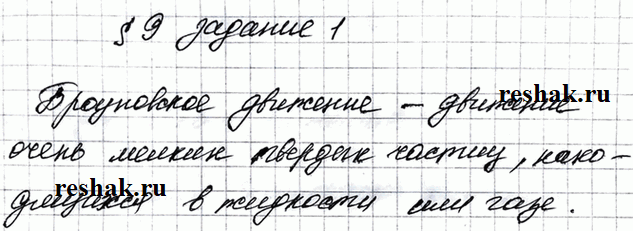 § 9 задание 1
reshak.ru
Броуновское движение – движение
очень мелких твердых частиц, нахо-
reshak.ru
дящихся в жидкости или газе.